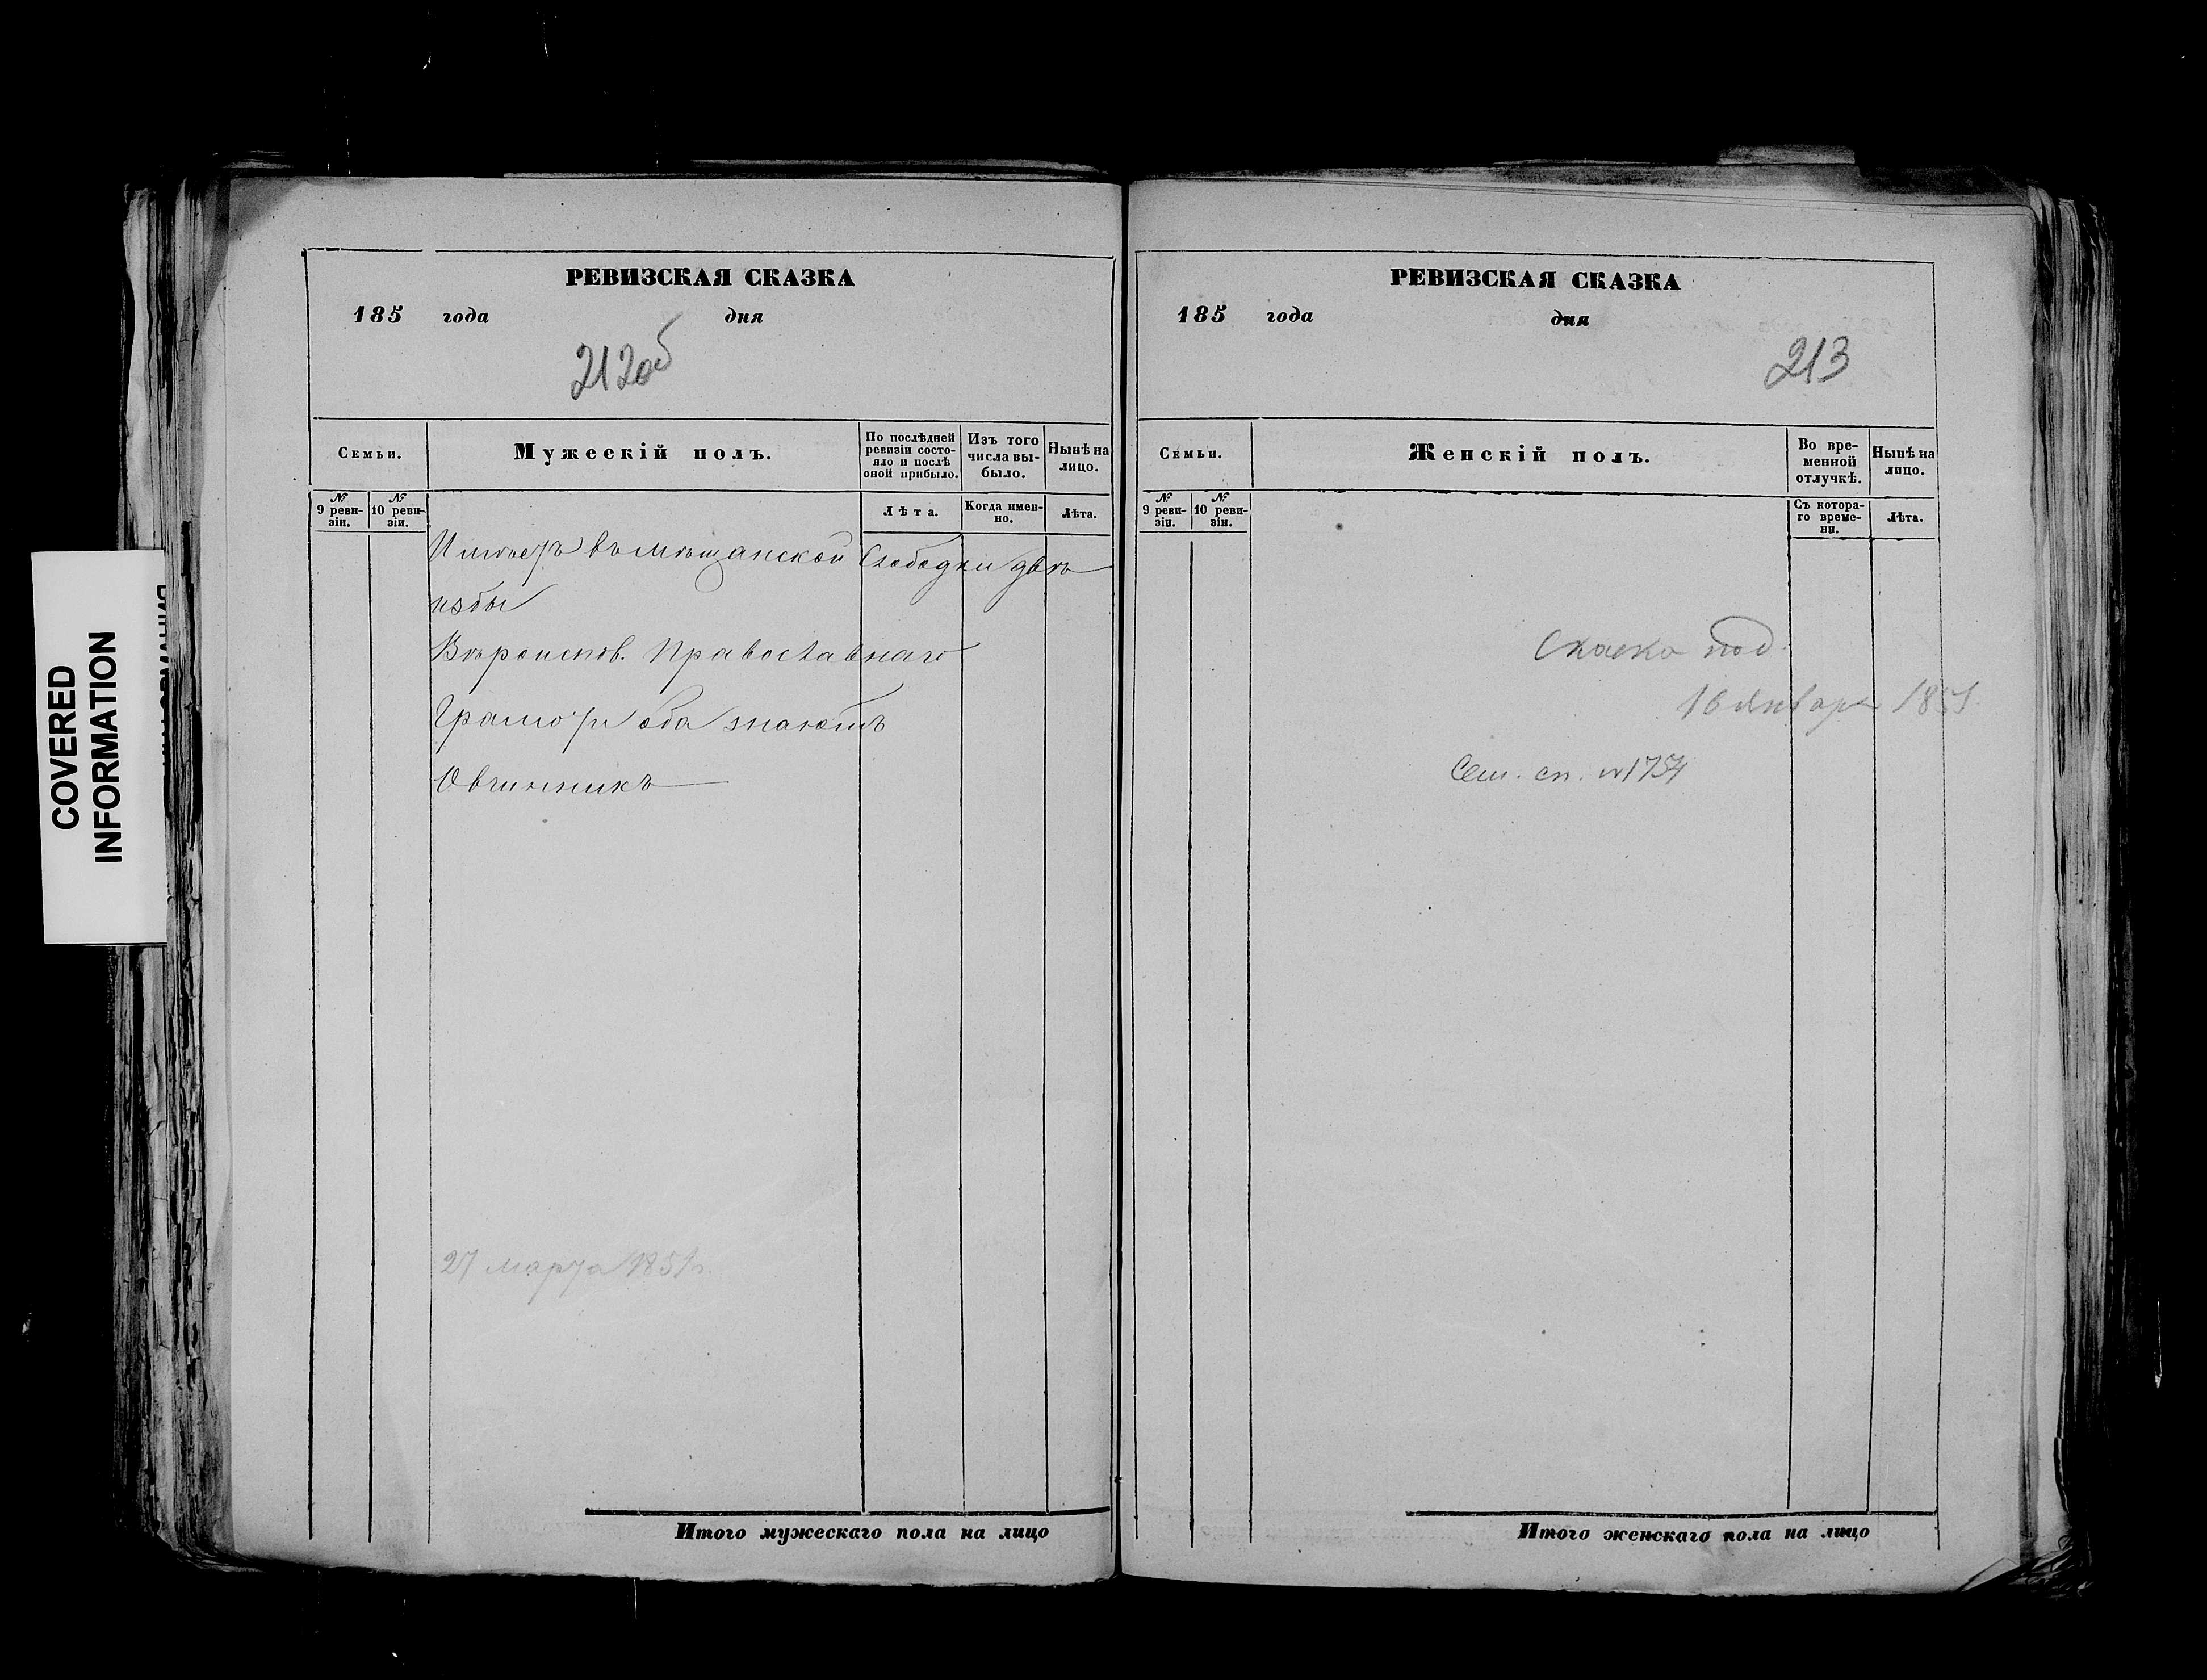 COVERED
INFORMATION
РЕВИЗСКАЯ СКАЗКА
185 года дня
212об
Семьи.
Мужескій полъ.
По послѣдней ревизіи состояло и послѣ оной прибыло.
Изъ того числа выбыло.
Нынѣ на лицо.
№ 9 ревизіи.
№ 10 ревизіи.
Лѣта.
Когда именно.
Лѣта.
Имѣетъ въ мѣщанской Слободки двѣ
избы
Вѣроиспов. Православнаго
Грамоту оба знаютъ
Овчинникъ
27 марта 1851г.
Итого мужескаго пола на лицо
РЕВИЗСКАЯ СКАЗКА
185 года дня
213
Семьи.
Женскій полъ.
Во временной отлучкѣ.
Нынѣ на лицо.
№ 9 ревизіи.
№ 10 ревизіи.
Съ котораго времени.
Лѣта.
Сказка под.
16 января 1851
Сем. сп. №1754
Итого женскаго пола на лицо